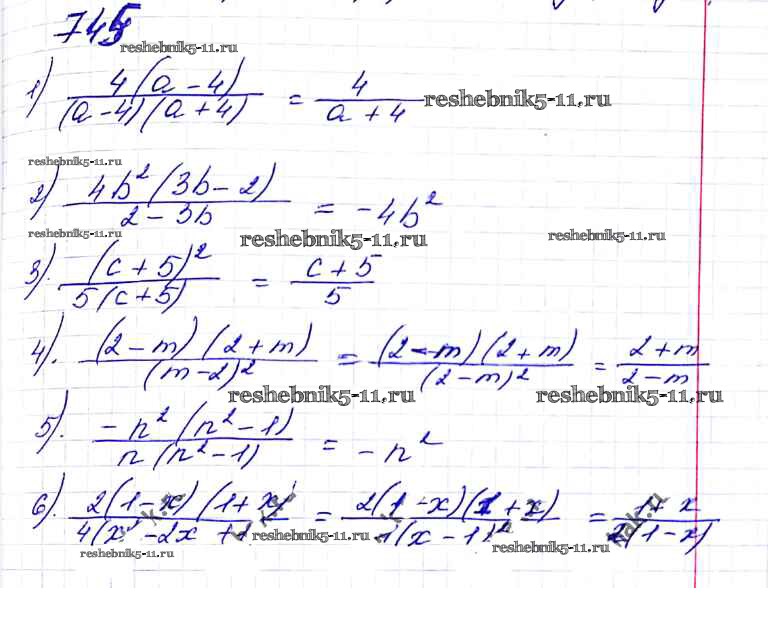 745
reshebnik5-11.ru
1) 4(a-4) / (a-4)(a+4) = 4 / a+4
reshebnik5-11.ru
reshebnik5-11.ru
2) 4b² (3b-2) / 2-3b = -4b²
reshebnik5-11.ru
reshebnik5-11.ru
reshebnik5-11.ru
3). (c+5)² / 5(c+5) = c+5 / 5
4). (2-m)(2+m) / (m-2)² = (2-m)(2+m) / (2-m)² = 2+m / 2-m
reshebnik5-11.ru
reshebnik5-11.ru
5). -n² (n²-1) / n(n²-1) = -n²
6). 2(1-x)(1+x) / 4(x²-2x+1 = 2(1-x)(1+x) / (x-1)² = 1+x / 2(1-x)
reshebnik5-11.ru
reshebnik5-11.ru